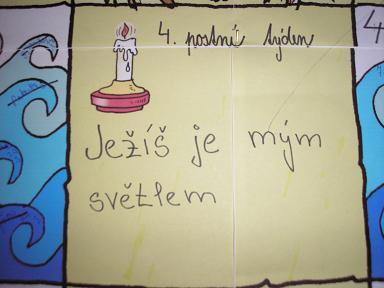 4. postní týden
4
Ježíš je mým
světlem